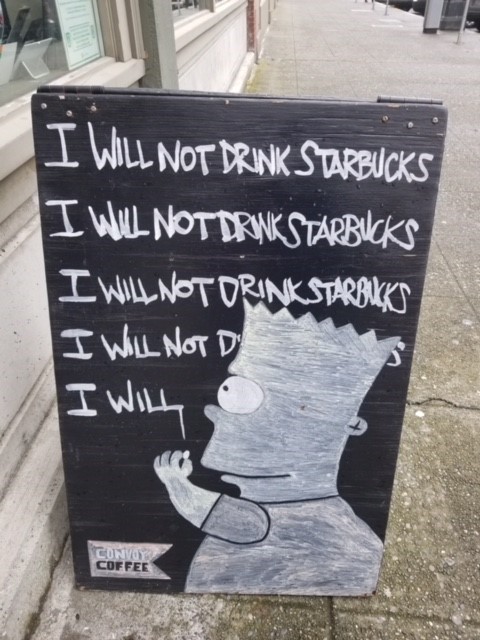 I WILL NOT DRINK STARBUCKS
I WILL NOT DRINK STARBUCKS
I WILL NOT DRINK STARBUCKS
I WILL NOT D S
I WILL
CONVOY
COFFEE